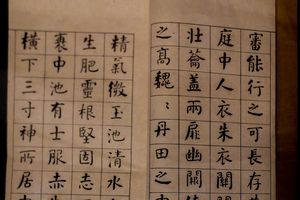 審能行之可長存
庭中人衣朱衣關
壯籥蓋兩扉幽闕
之高魏〻丹田之中
精氣微玉池清水
生肥靈根堅固志
衰中池有士服赤
橫下三寸神所居